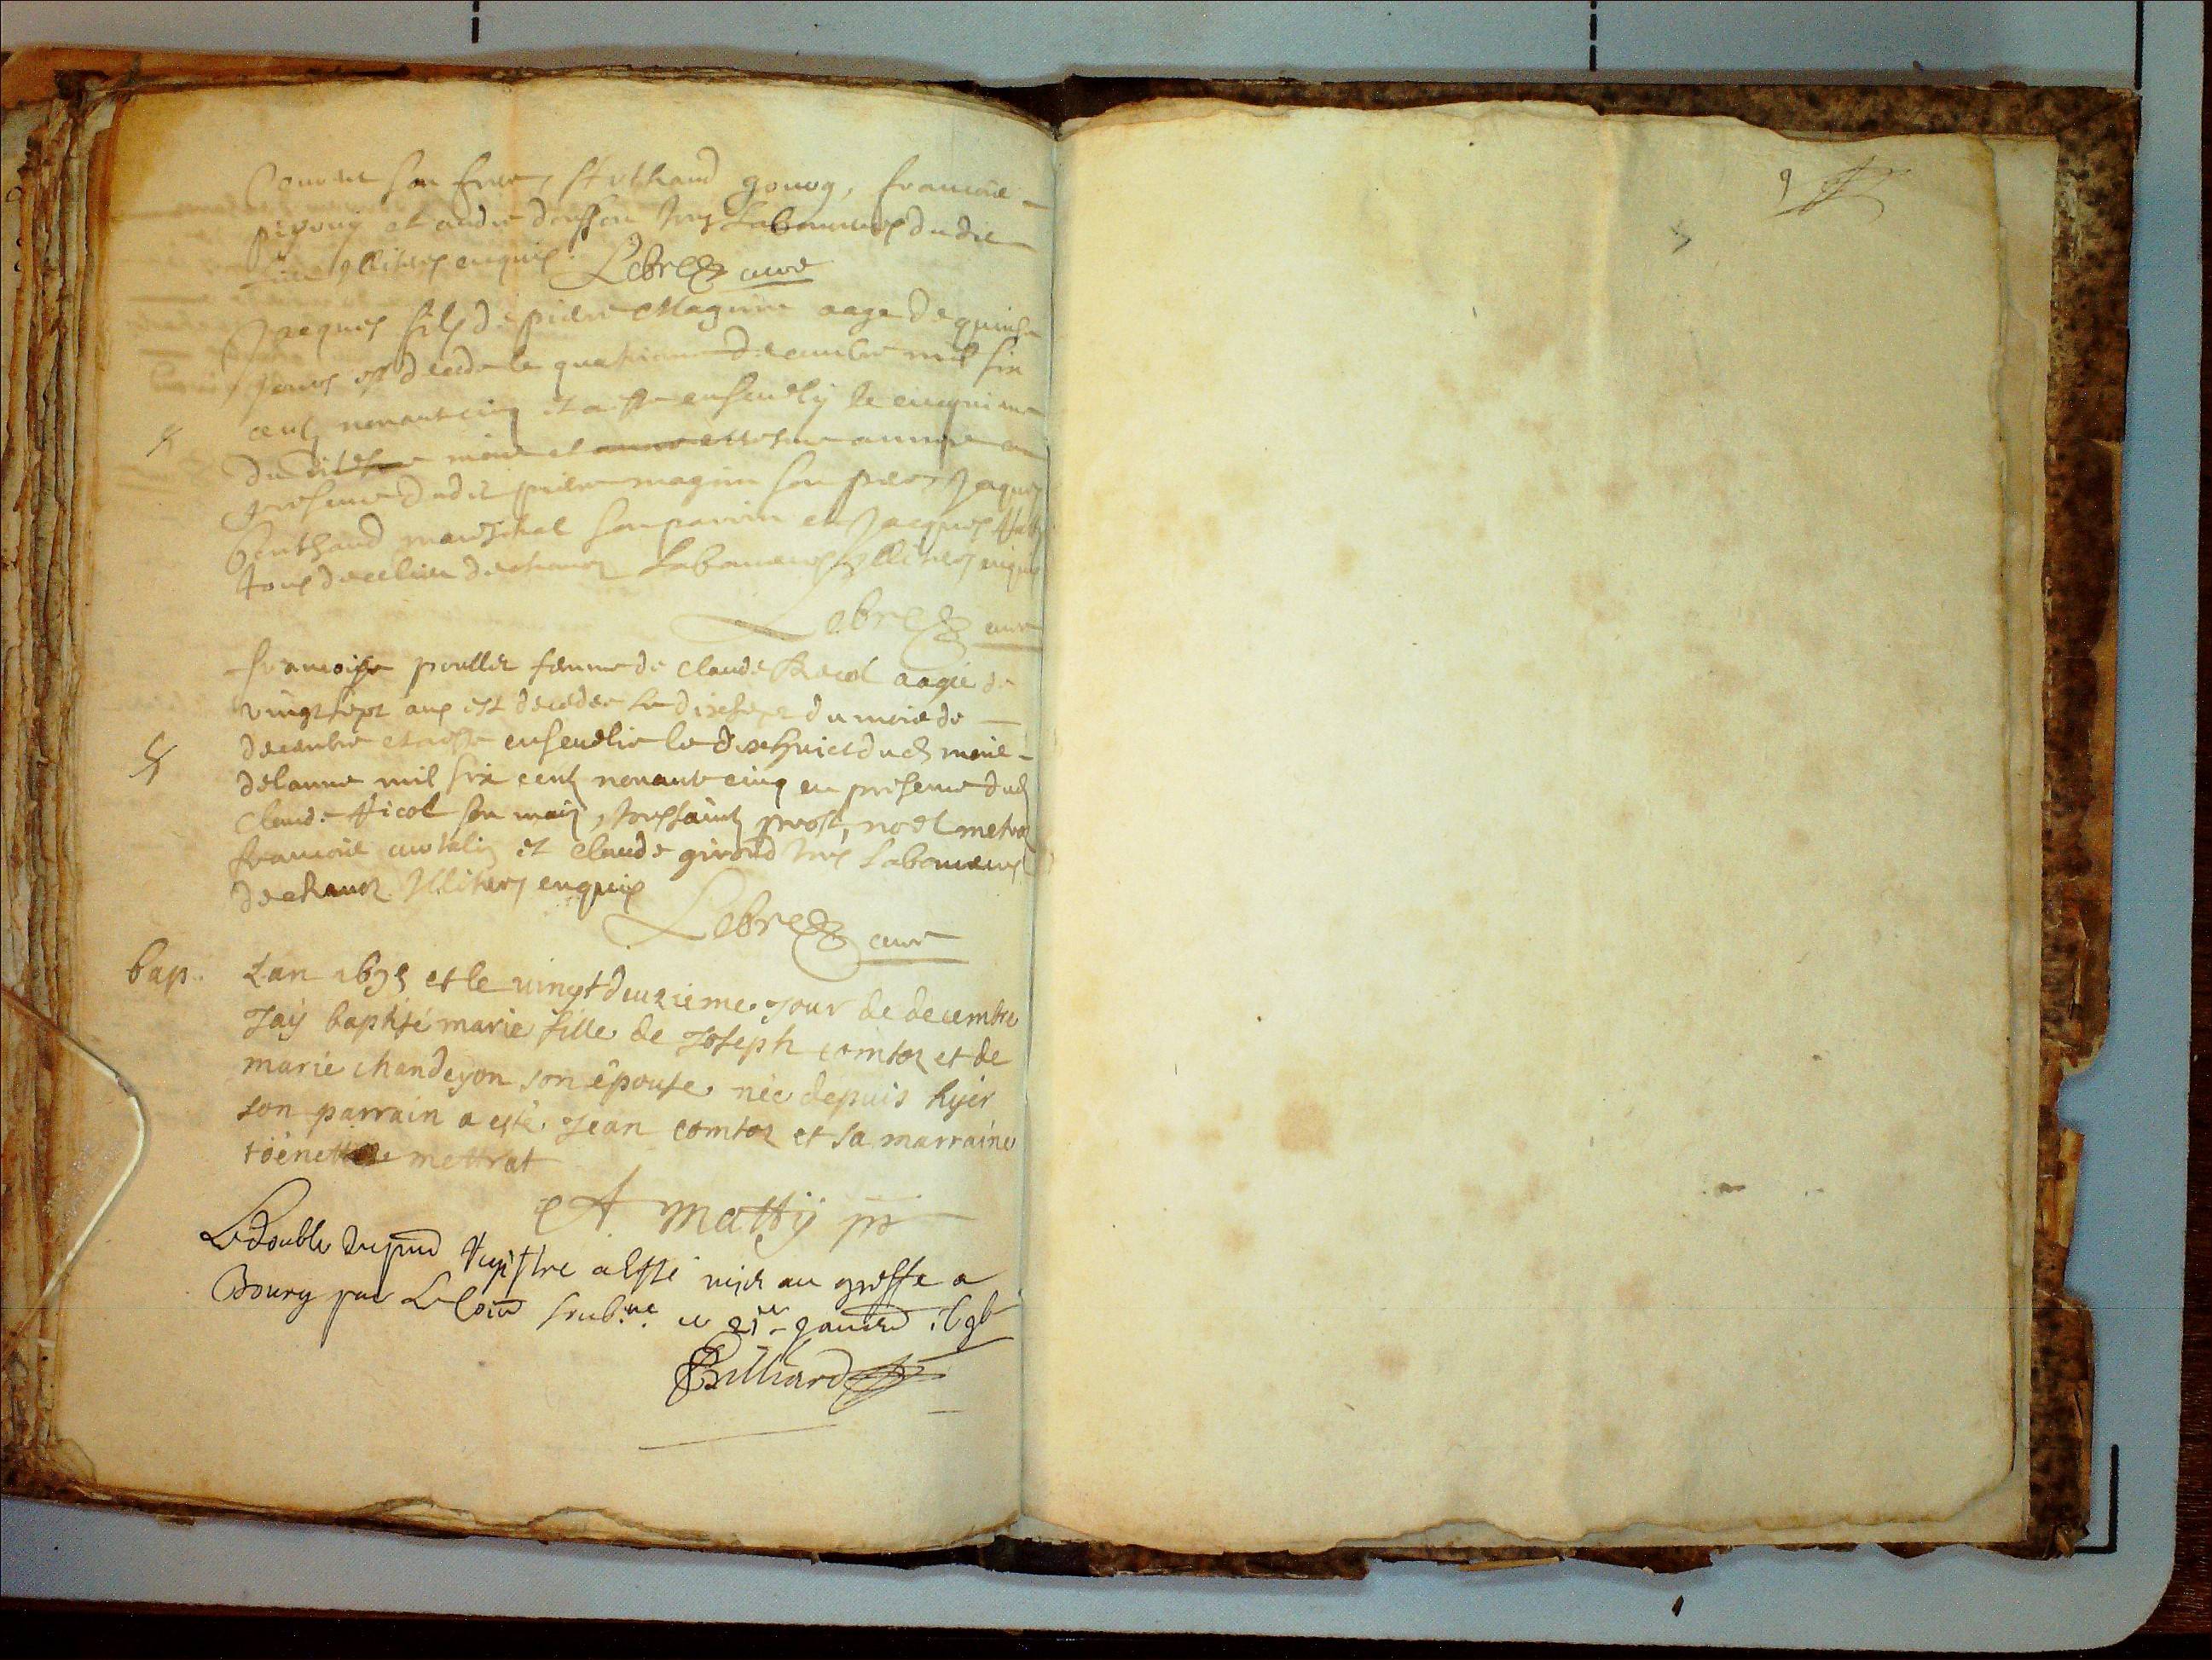 son frere, gouog, francois
et andre tous Laboureurs dudit
lieu Illiteres enquis Lebrez cure
Jacques fils de pierre Magnin aage de quinse
jours est decede le quatrieme decembre mil six
cents nonante cinq et a esté ensevely le cinquieme
dudit mois et annee en
presence dudit pierre magnin son pere, Jaques
Berthaud mareschal son parrin et Jacques
tous de ce lieu de Laboureurs Illiteres enquis
Lebrez cure
francoise poullet femme de claude aagée de
vingt sept ans est decedee le dixsept du mois de
decembre et a esté ensevelie le dixhuict dud mois
de lanne mil six cents nonante cinq en presence dud
Claude son mary, toussaint prost, noel metra
francois et claude girord tous Laboureurs
de Illiteres enquis
Lebrez cure
bap. Lan 1695 et le vingt deuxieme Jour de decembre
Jay baptisé marie fille de Joseph comtoz et de
marie chandeyon son épouse née depuis hyer
son parrain a esté Jean comtoz et sa marraine
töenette mettrat
A mattÿ ptre
Le double du pnt Registre a esté mis au greffe a
Bourg par Le ce 21e janvier 1696
Billiard
9